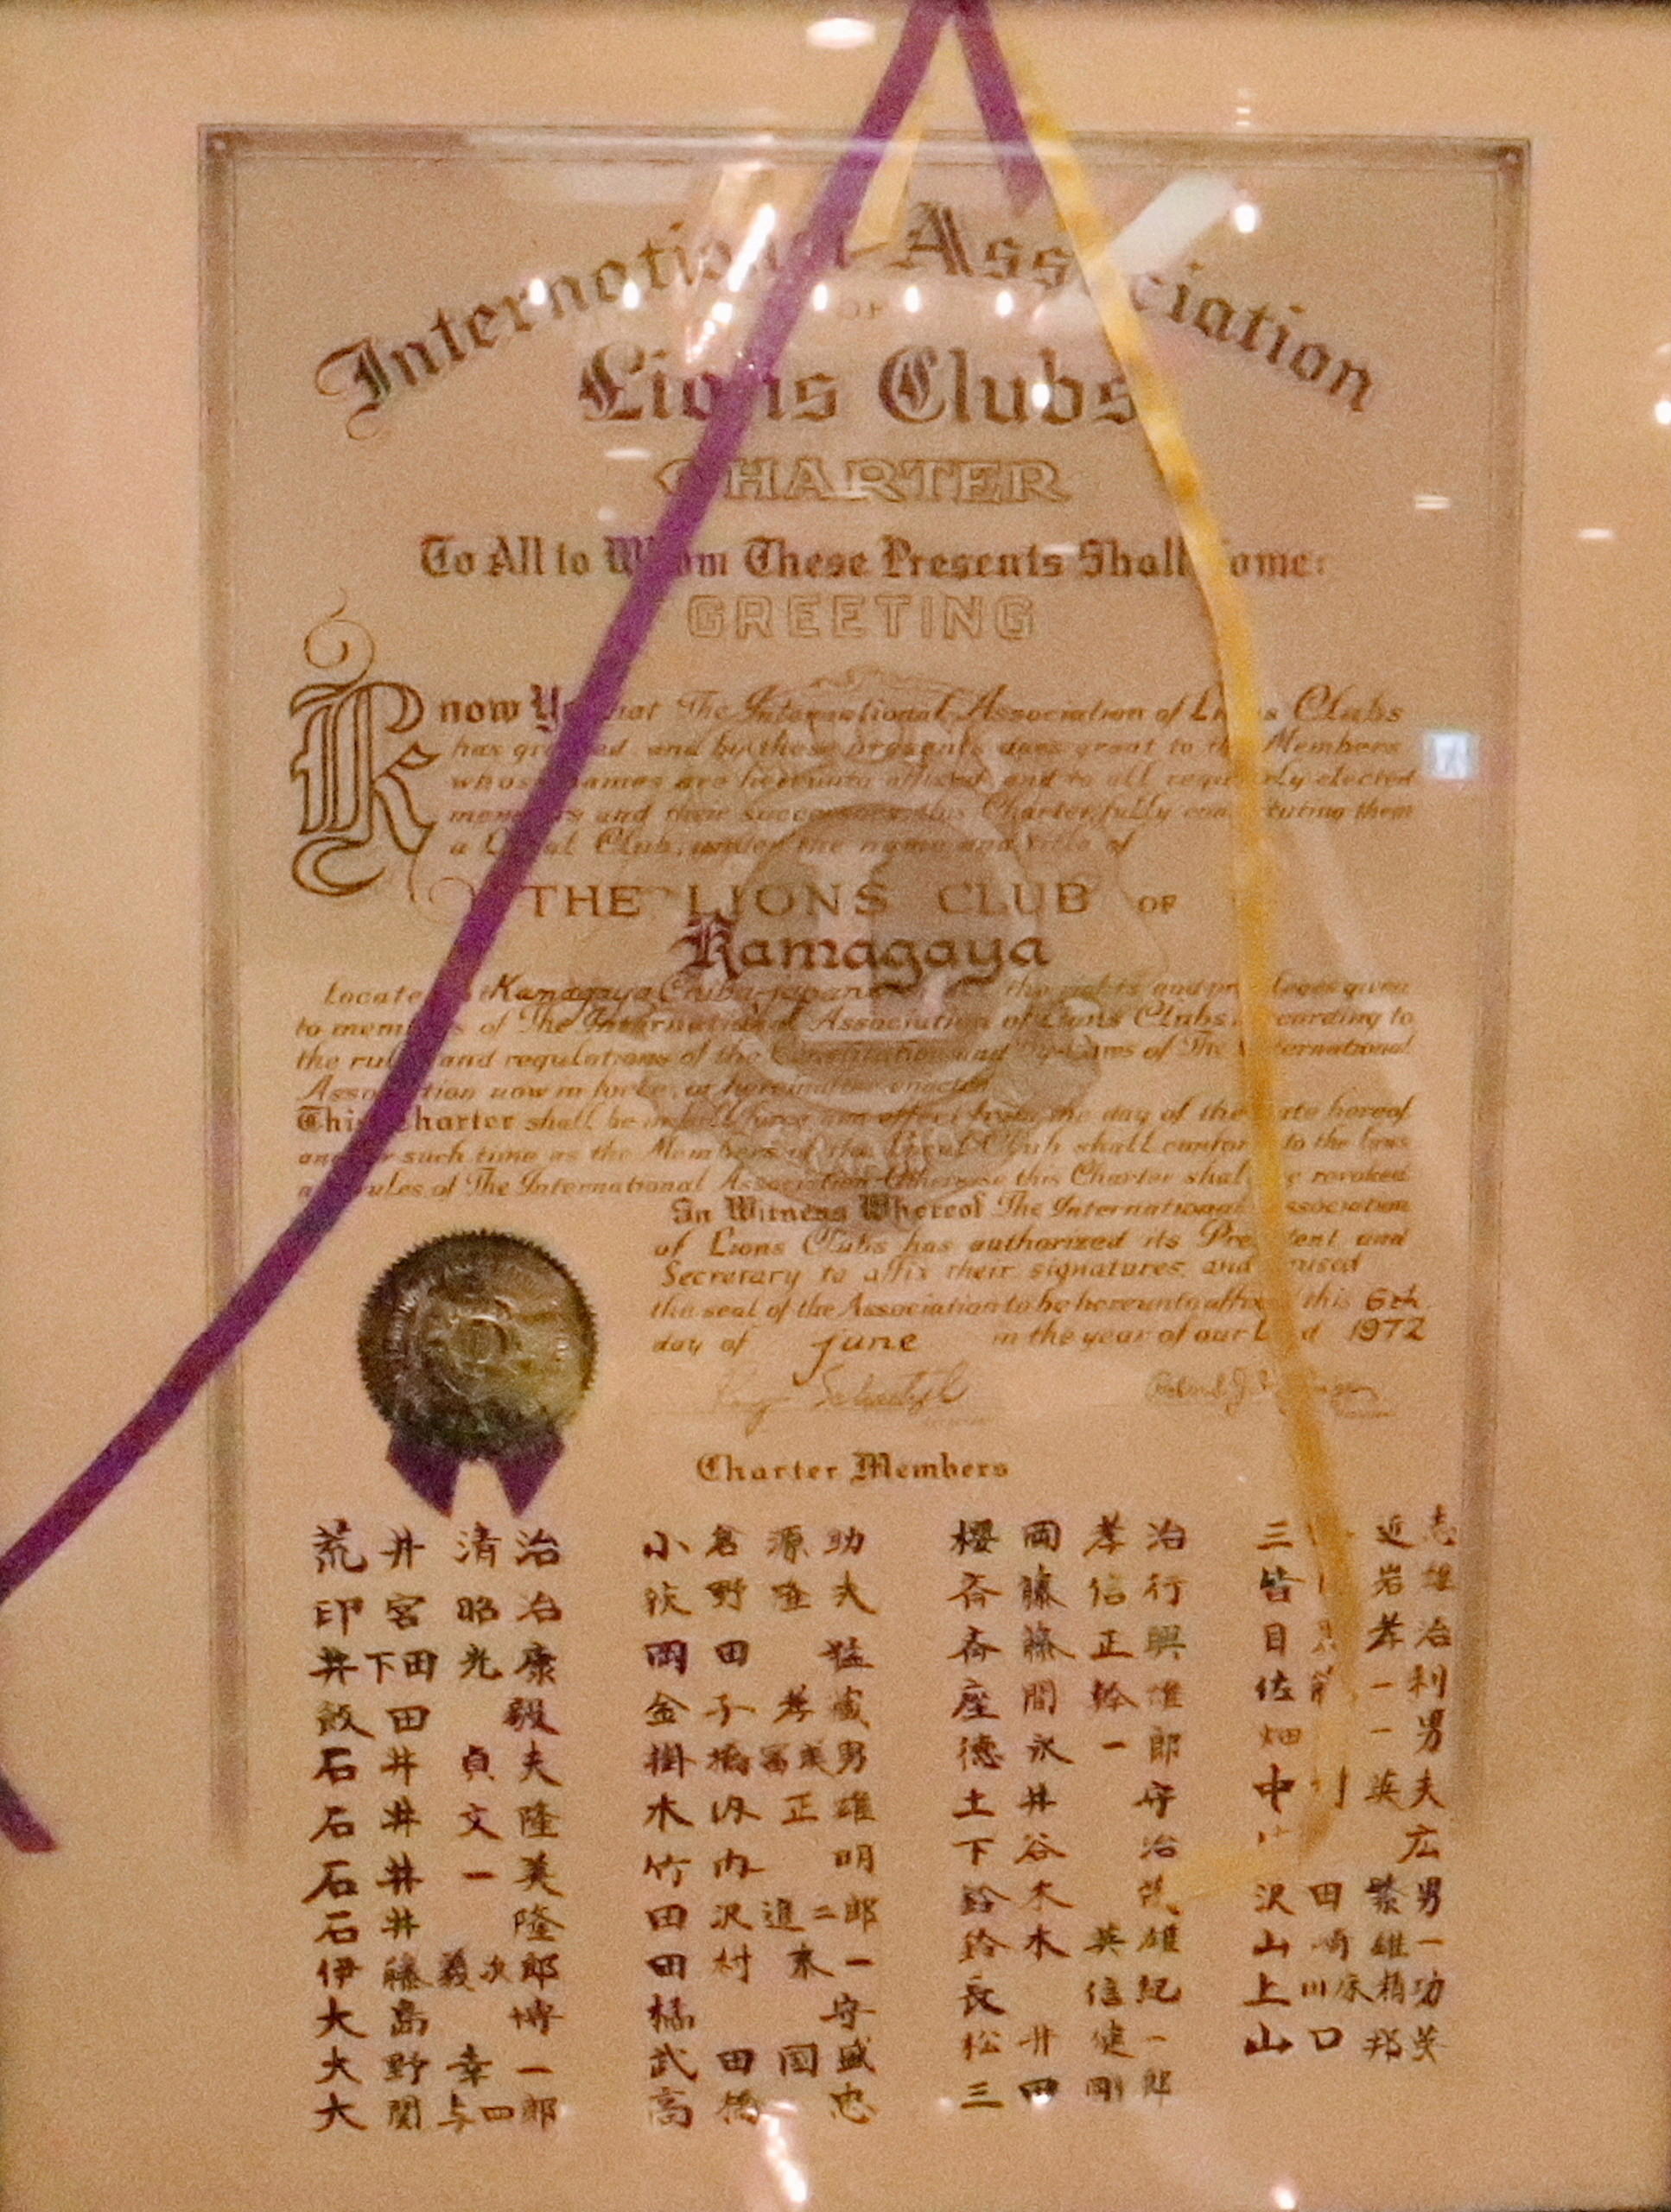 International Association
OF
Lions Clubs
CHARTER
To All to Whom These Presents Shall Come:
GREETING
Know Ye that The International Association of Lions Clubs
has granted and by these presents does grant to the Members
whose names are hereunto affixed and to all regularly elected
members and their successors this Charter, fully constituting them
a Local Club, under the name and title of
THE LIONS CLUB OF
Kamagaya
Located at Kamagaya Chiba, japan the rights and privileges given
to members of The International Association of Lions Clubs, according to
the rules and regulations of the Constitution and By-Laws of The International
Association now in force, or hereinafter enacted.
This Charter shall be in full force and effect from the day of the date hereof
and for such time as the Members of the Local Club shall conform to the laws
and rules of The International Association Otherwise this Charter shall be revoked
In Witness Whereof The International Association
of Lions Clubs has authorized its President and
Secretary to affix their signatures, and caused
the seal of the Association to be hereunto affixed this 6th
day of june in the year of our Lord 1972
Charter Members
荒井清治
印宮昭治
井下田光康
飯田毅
石井貞夫
石井文隆
石井一美
石井隆
伊藤義次郎
大島博
大野幸一
大関与四郎
小名源助
荻野隆夫
岡田猛
金子孝蔵
掛橋富美男
木内正雄
竹内明
田沢進二郎
田村末一
橘守
武田国盛
高橋忠
櫻岡孝治
斉藤信行
斉藤正興
座間幹雄
徳永一郎
土井守
下谷治
鈴木茂
鈴木英雄
長信紀
松井健一
三田剛郎
三近志
皆岩雄
目孝治
佐一利
畑一男
中村英夫
広
沢田繁男
山崎雄一
上川床精功
山口邦英